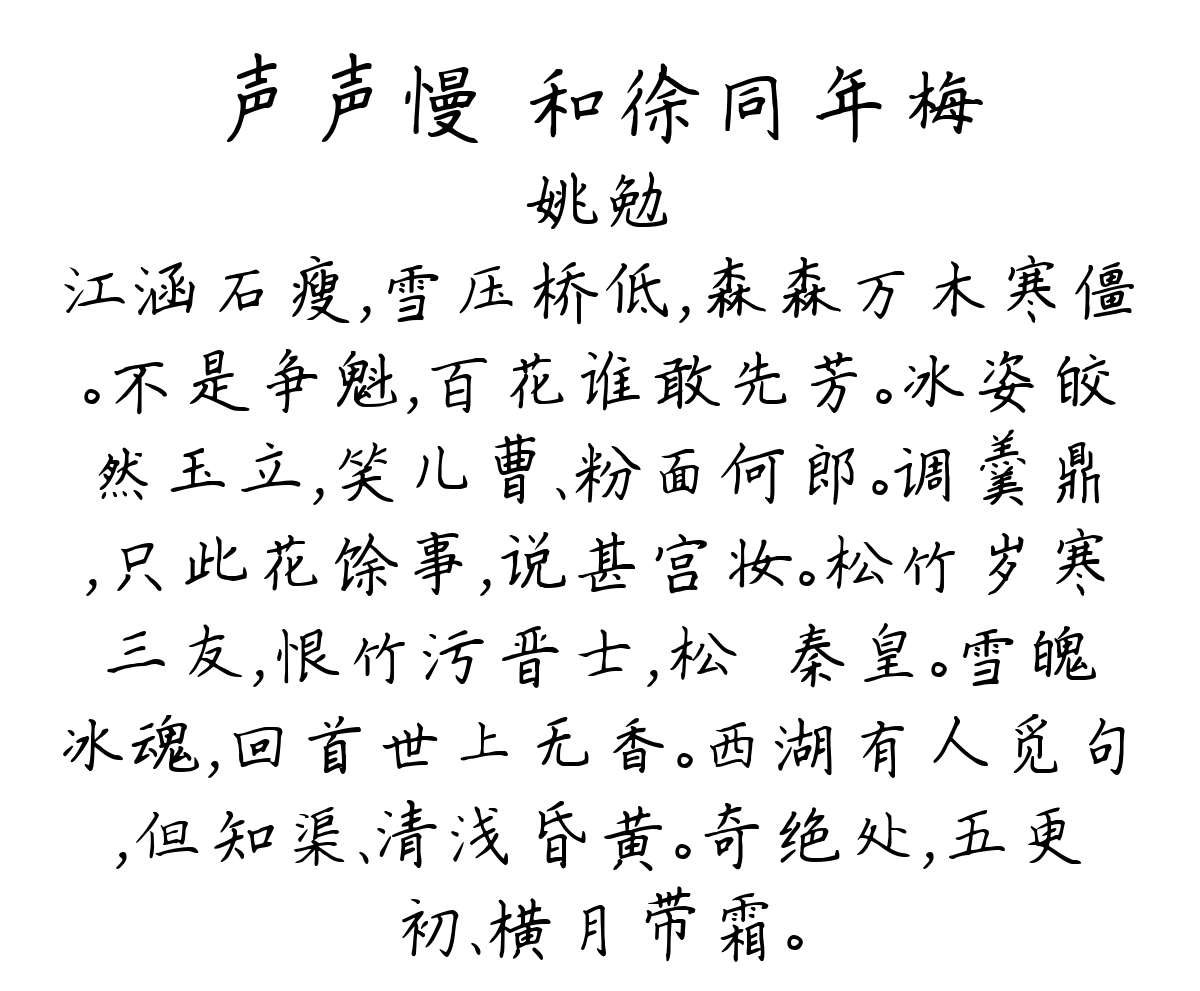 声声慢 和徐同年梅
姚勉
江涵石瘦,雪压桥低,森森万木寒僵
。不是争魁,百花谁敢先芳。冰姿皎
然玉立,笑儿曹、粉面何郎。调羹鼎
,只此花馀事,说甚宫妆。松竹岁寒
三友,恨竹污晋士,松 秦皇。雪魄
冰魂,回首世上无香。西湖有人觅句
,但知渠、清浅昏黄。奇绝处,五更
初、横月带霜。